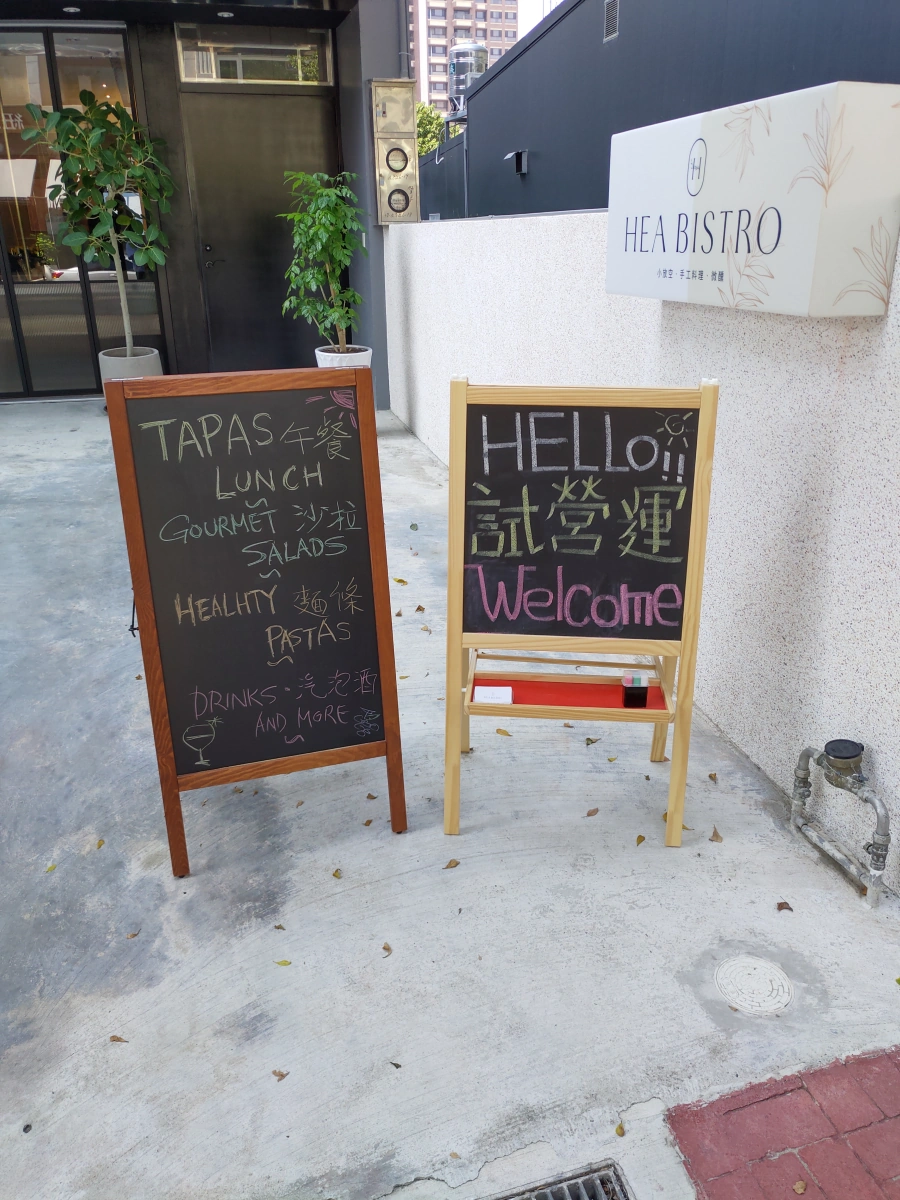 H
HEA BISTRO
小放空・手工料理・微醺
TAPAS 午餐
LUNCH
GOURMET 沙拉
SALADS
HEALHTY 麵條
PASTAS
DRINKS・汽泡酒
AND MORE
HELLo!!
試營運
Welcome